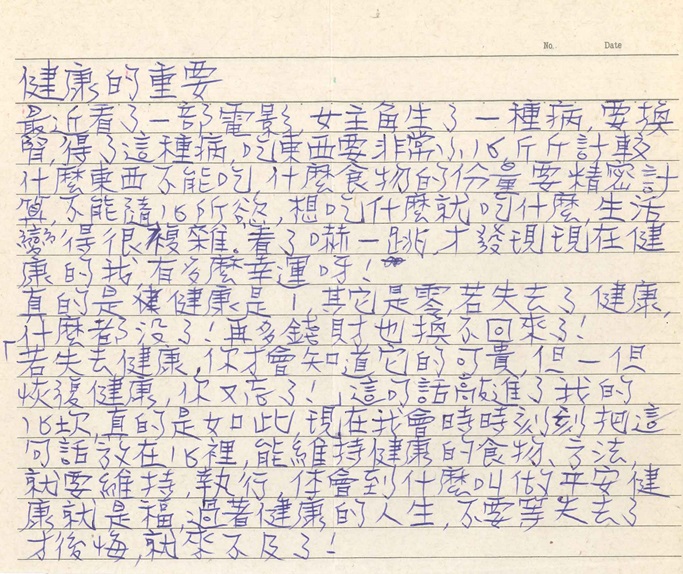 No. Date
健康的重要
最近看了一部電影,女主角生了一種病,要換
腎,得了這種病,吃東西要非常小心斤斤計較
什麼東西不能吃,什麼食物的份量要精密計
算,不能隨心所欲,想吃什麼就吃什麼,生活
變得很複雜.看了嚇一跳,才發現現在健
康的我,有多麼幸運呀!
真的是健康是1,其它是零,若失去了健康,
什麼都没了!再多錢財也換不回來了!
「若失去健康,你才會知道它的可貴,但一但
恢復健康,你又忘了!」這句話敲進了我的
心坎,真的是如此,現在我會時時刻刻把這
句話放在心裡,能維持健康的食物、方法,
就要維持,執行,体會到什麼叫做平安健
康就是福,過著健康的人生,不要等失去了
才後悔,就來不及了!